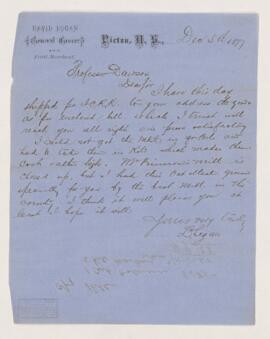 DAVID LOGAN
General Grocer
AND
Fruit Merchant.
Pictou, N. S., Dec 5th 1877
Professor Dawson
Dear Sir
I have this day
shipped for I.C.R.R. to your address the goods
as per enclosed bill, which I trust will
reach you all right and prove satisfactory
I could not get the
had to take them in Kits which makes them
cost rather high. Mr Primrose's Mill is
closed up, but I had this Oatmeal ground
specially for you by the best Mill in the
County, I think it will please you at
least I hope it will
Yours very truly
D Logan